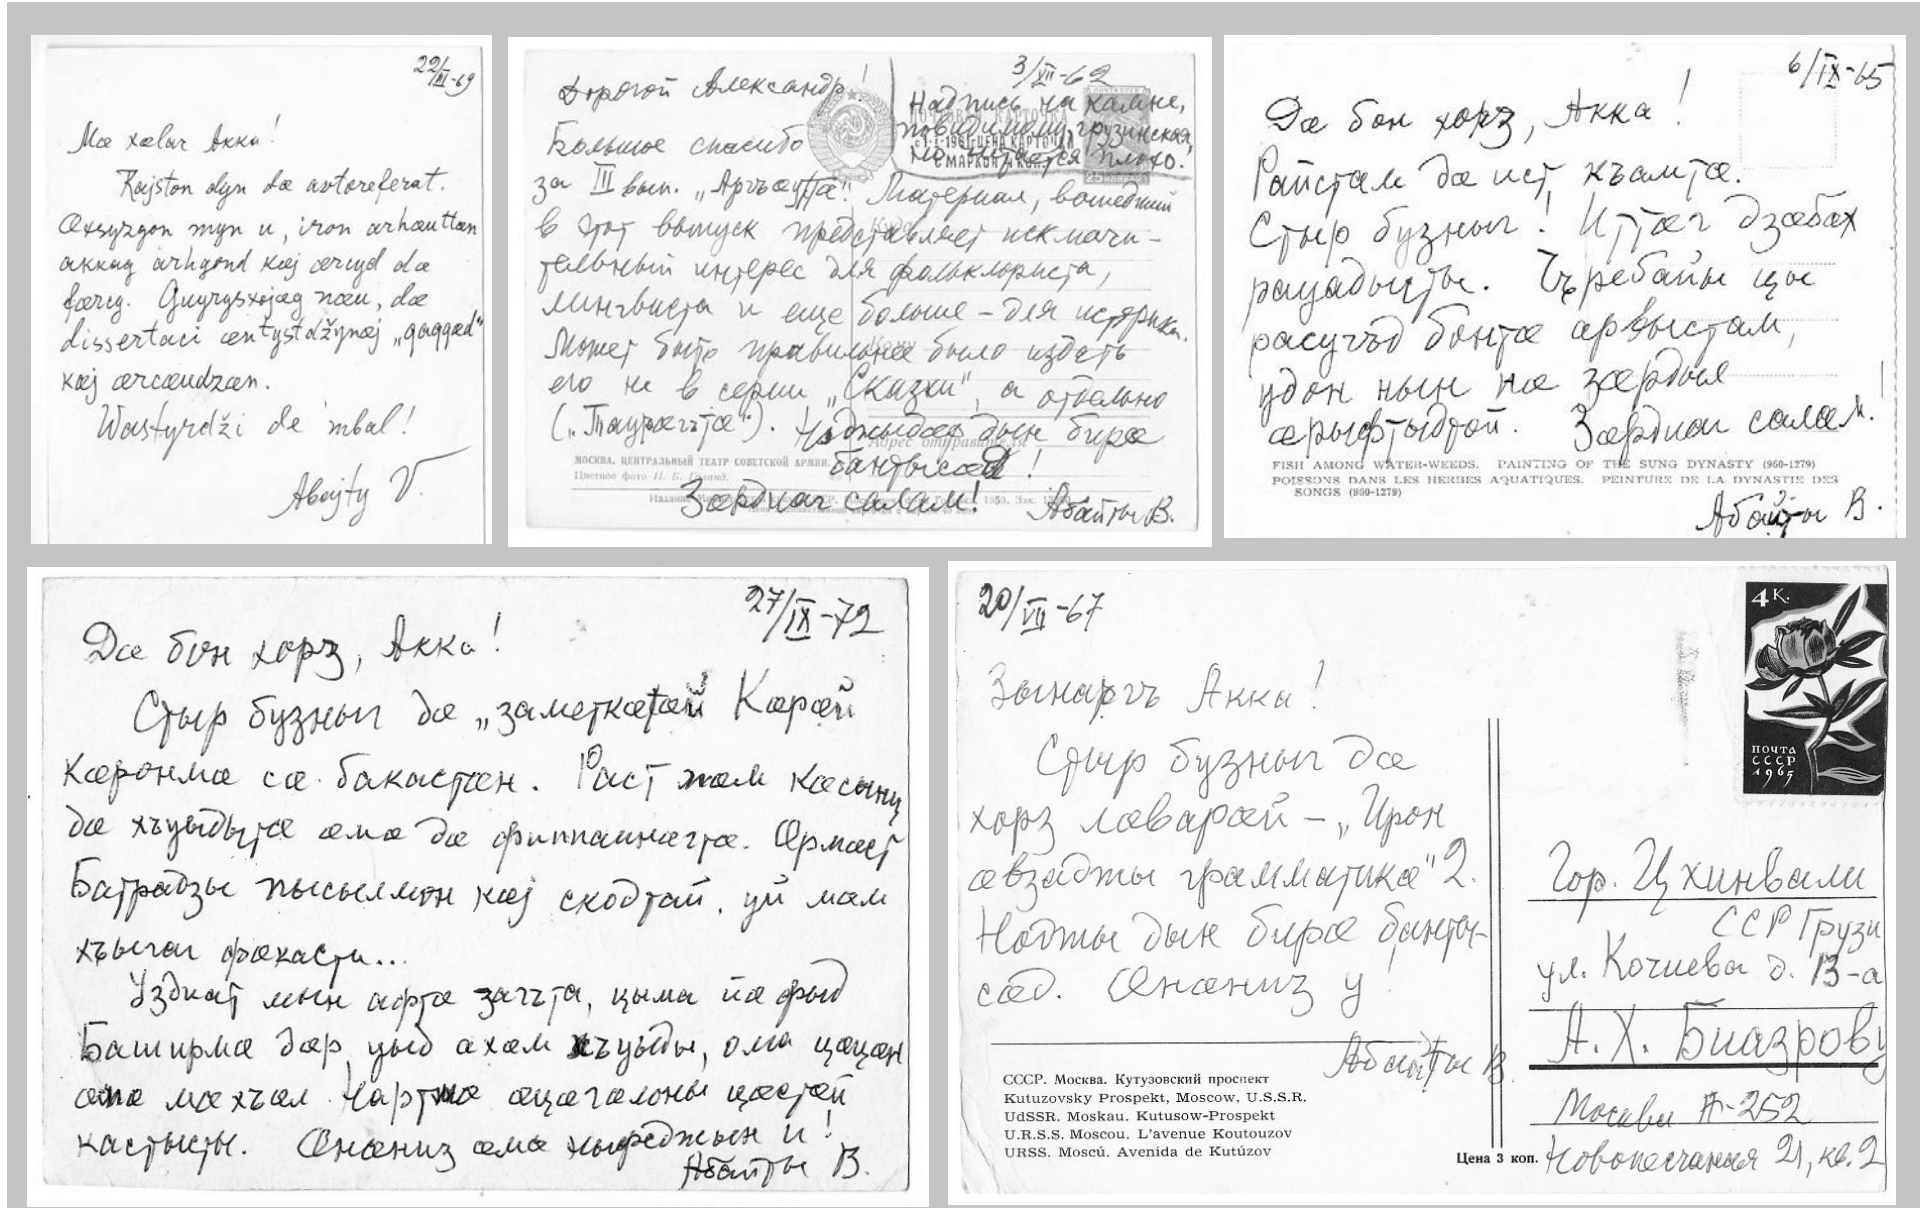 22/XI-69
Mæ xælar Akka!
Rajston dyn dæ avtoreferat.
Æxsyzgon myn u, iron arhæuttæn
akkag arhgond kæj ærcyd dæ
færcy. Guyrysxojag næu, dæ
dissertaci æntystdžynæj „qaqqæd"
kæj ærcæudzæn.
Wastyrdži de 'mbal!
Abajty V.
3/VII-62
Дорогой Александр!
Надпись на камне,
повидимому, грузинская,
но читается плохо!
Большое спасибо
за III вып. „Аргъæуттæ". Материал, вошедший
в этот выпуск представляет исключи-
тельный интерес для фольклориста,
лингвиста и еще больше – для историка.
Может быть правильнее было издать
его не в серии „Сказки", а отдельно
(„Таурæгътæ"). дын бирæ
бантысæд!
МОСКВА. ЦЕНТРАЛЬНЫЙ ТЕАТР СОВЕТСКОЙ АРМИИ.
Цветное фото
Зæрдиаг салам! Абайты В.
6/IX-65
Дæ бон хорз, Акка!
Райстам дæ ист къамтæ.
Стыр бузныг! Иттæг дзæбæх
рауадысты. Чъребайы цы
рæсугъд бонтæ арвыстам,
удон нын нæ зæрдыл
æрыфтыдтой. Зæрдиаг салам!
FISH AMONG WATER-WEEDS. PAINTING OF THE SUNG DYNASTY (960-1279)
POISSONS DANS LES HERBES AQUATIQUES. PEINTURE DE LA DYNASTIE DES
SONGS (960-1279)
Абайты В.
27/IX-72
Дæ бон хорз, Акка!
Стыр бузныг дæ „заметкæтæй Кæрæй
Кæронмæ сæ бакастæн. Раст мæм кæсынц
дæ хъуыдытæ æмæ дæ фиппаинæгтæ. Æрмæст
Батрадзы пысылмон кæj скодтай, уй мæм
хъыгаг фæкасти...
Уæдмæ мын афтæ загъта, цыма йæ фыд
Баширмæ дæр уыд ахæм хъуыды, омæ цæцæн
æмæ мæхъæл Нартмæ æцæгæлоны цæстæй
кæстысты. Æнæниз æмæ ныфсджын у!
Абайты В.
20/VII-67
Зынаргъ Акка!
Стыр бузныг дæ
хорз лæварæй – „Ирон
æвзаджы грамматикæ" 2.
Ноджы дын бирæ банты-
сæд. Æнæниз у!
Абайты В.
4 К.
ПОЧТА
СССР
1965
Гор. Цхинвали
ССР Грузи
ул. Кочиева д. 13-а
А. Х. Биазрову
Москва А-252
Новопесчаная 21, кв. 2
СССР. Москва. Кутузовский проспект
Kutuzovsky Prospekt, Moscow, U.S.S.R.
UdSSR. Moskau. Kutusow-Prospekt
U.R.S.S. Moscou. L'avenue Koutouzov
URSS. Moscú. Avenida de Kutúzov
Цена 3 коп.